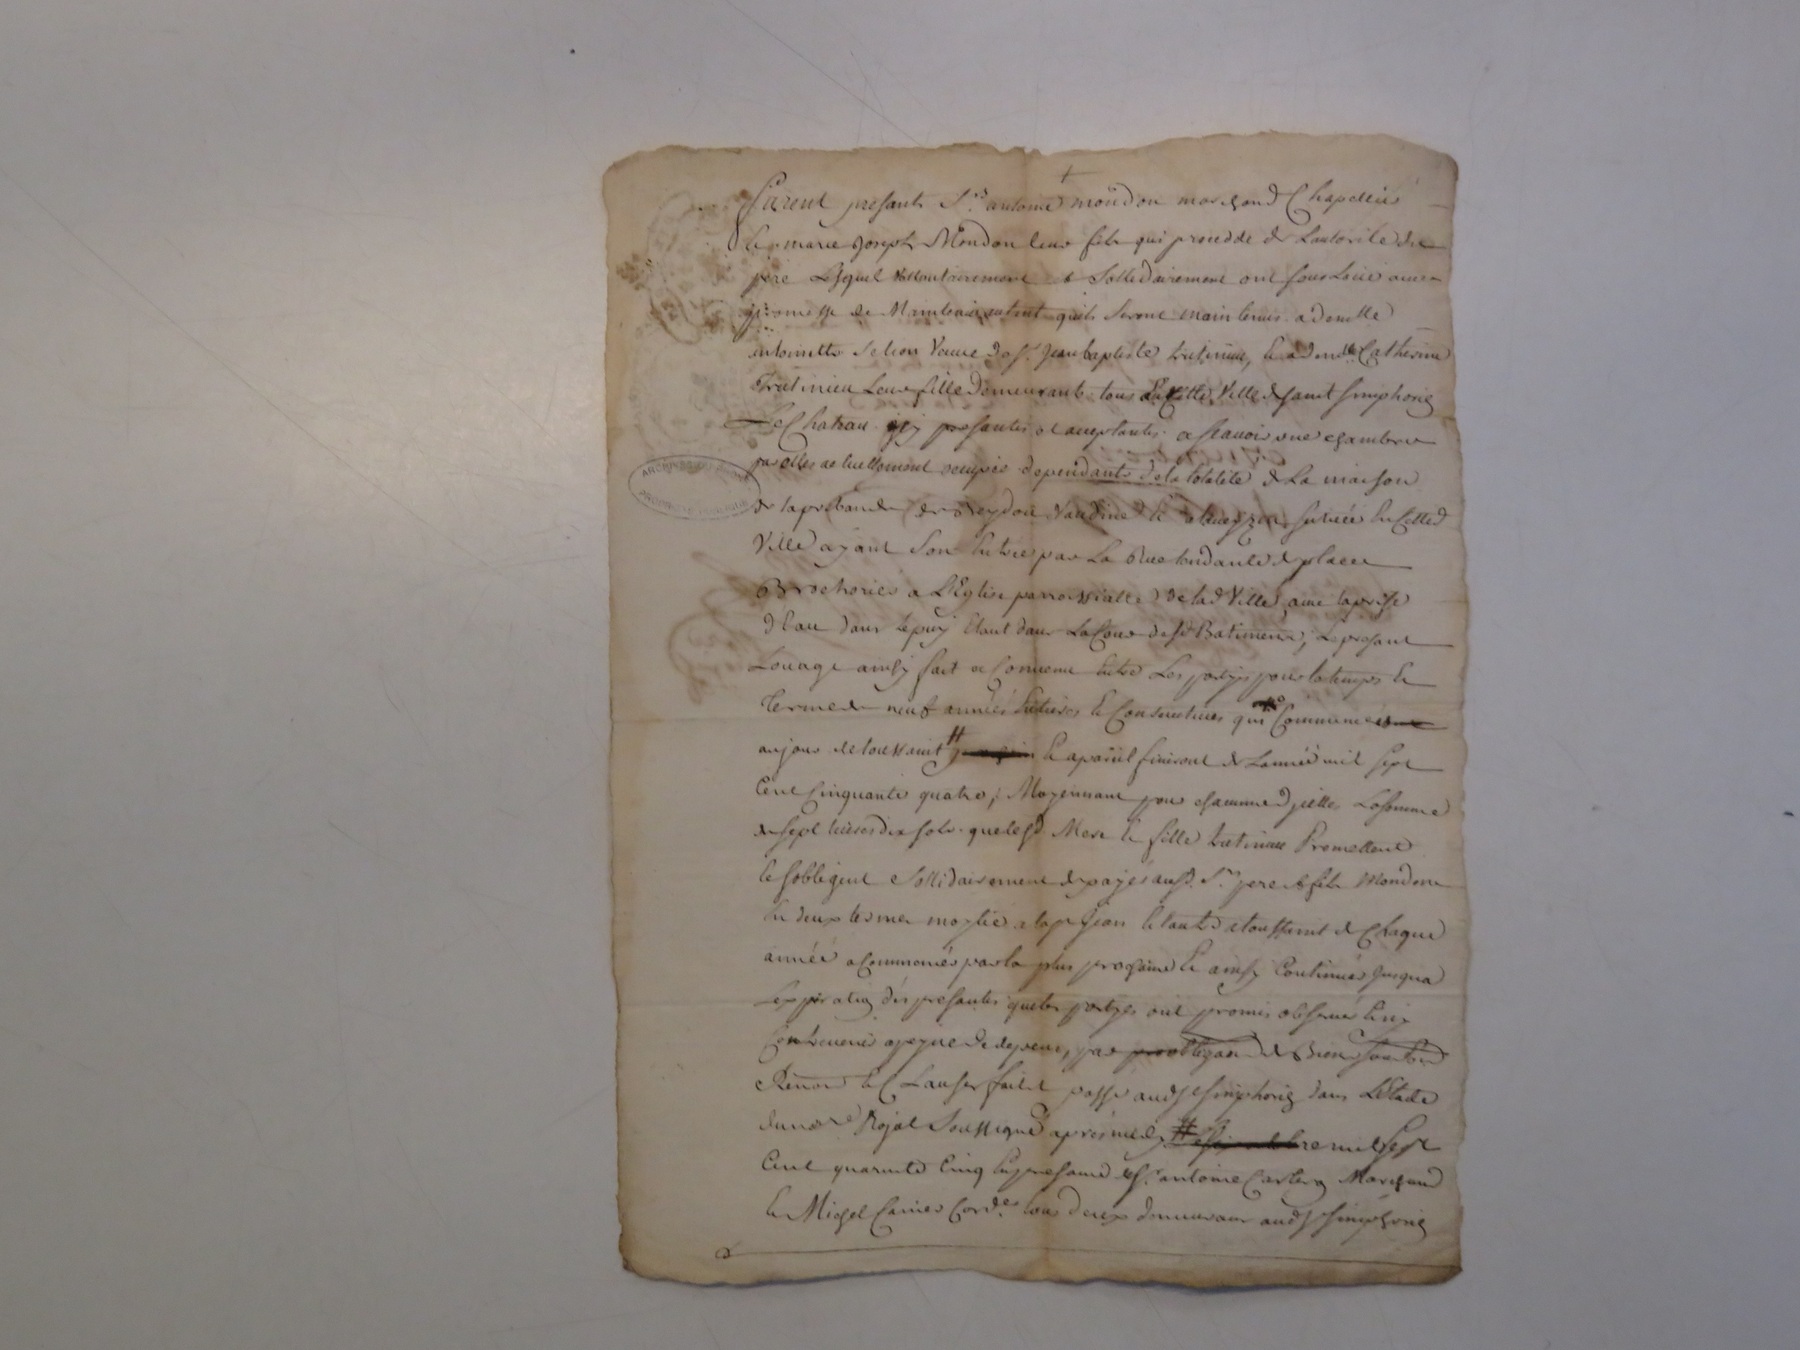 furent presants Sr. antoine mondon marchand Chapellier
Et marie Joseph Mondon leur fils qui procedde de Lautorité du
pere Lesquel vollontairement et Sollidairement ont sous Loüé avec
promesse de Maintenir autant quils seront maintenus a demlle
antoinette veuve de Sr. Jean baptiste tretinieu, Et a demlle Catherine
Tretinieu Leur fille demeurants tous En Cette Ville de saint simphorien
Le Chateau icy presantes et aceptantes a scavoir une chambre
par elles actuellement occupée dependante de la totalité de La maison
de la prebande de situee En Cette d
Ville ayant son Entrée par La Rue tendante de place
a L'Eglise parroissialle de lad Ville, avec la prise
d'Eau dans Le puy Etant dans La Cour dud Batiment, Le presant
Louage ainsy fait et Convenu Entre Les partyes pour le temps Et
Terme de neuf années Entieres Et Consecutives qui Commence
au jour de toussaint # Et a pareil finiront de Lannée mil sept
Cent Cinquante quatre, Moyennant pour chacune d'icelles La somme
de sept livres dix sols que lesd Mere Et fille tretinieu Promettent
Et sobligent sollidairement de payer ausd. Srs. pere et fils Mondon
En deux termes moytié a la st Jean Et lautre a toussaint de Chaque
année a Commancer par la plus prochaine Et ainsy Continuer Jusqua
Lexpiration des presantes que les partyes ont promis observer Et ny
Contrevenir a peyne de depens, par obligaon de Biens
Renon Et Clauses fait et passé aud st simphorien dans L'Etude
du nore Royal soussigné apres midy # mil sept
Cent quarante Cinq En presance de Sr. antoine Marchand
Et Michel Cordr. tous deux demeurant aud st simphorien